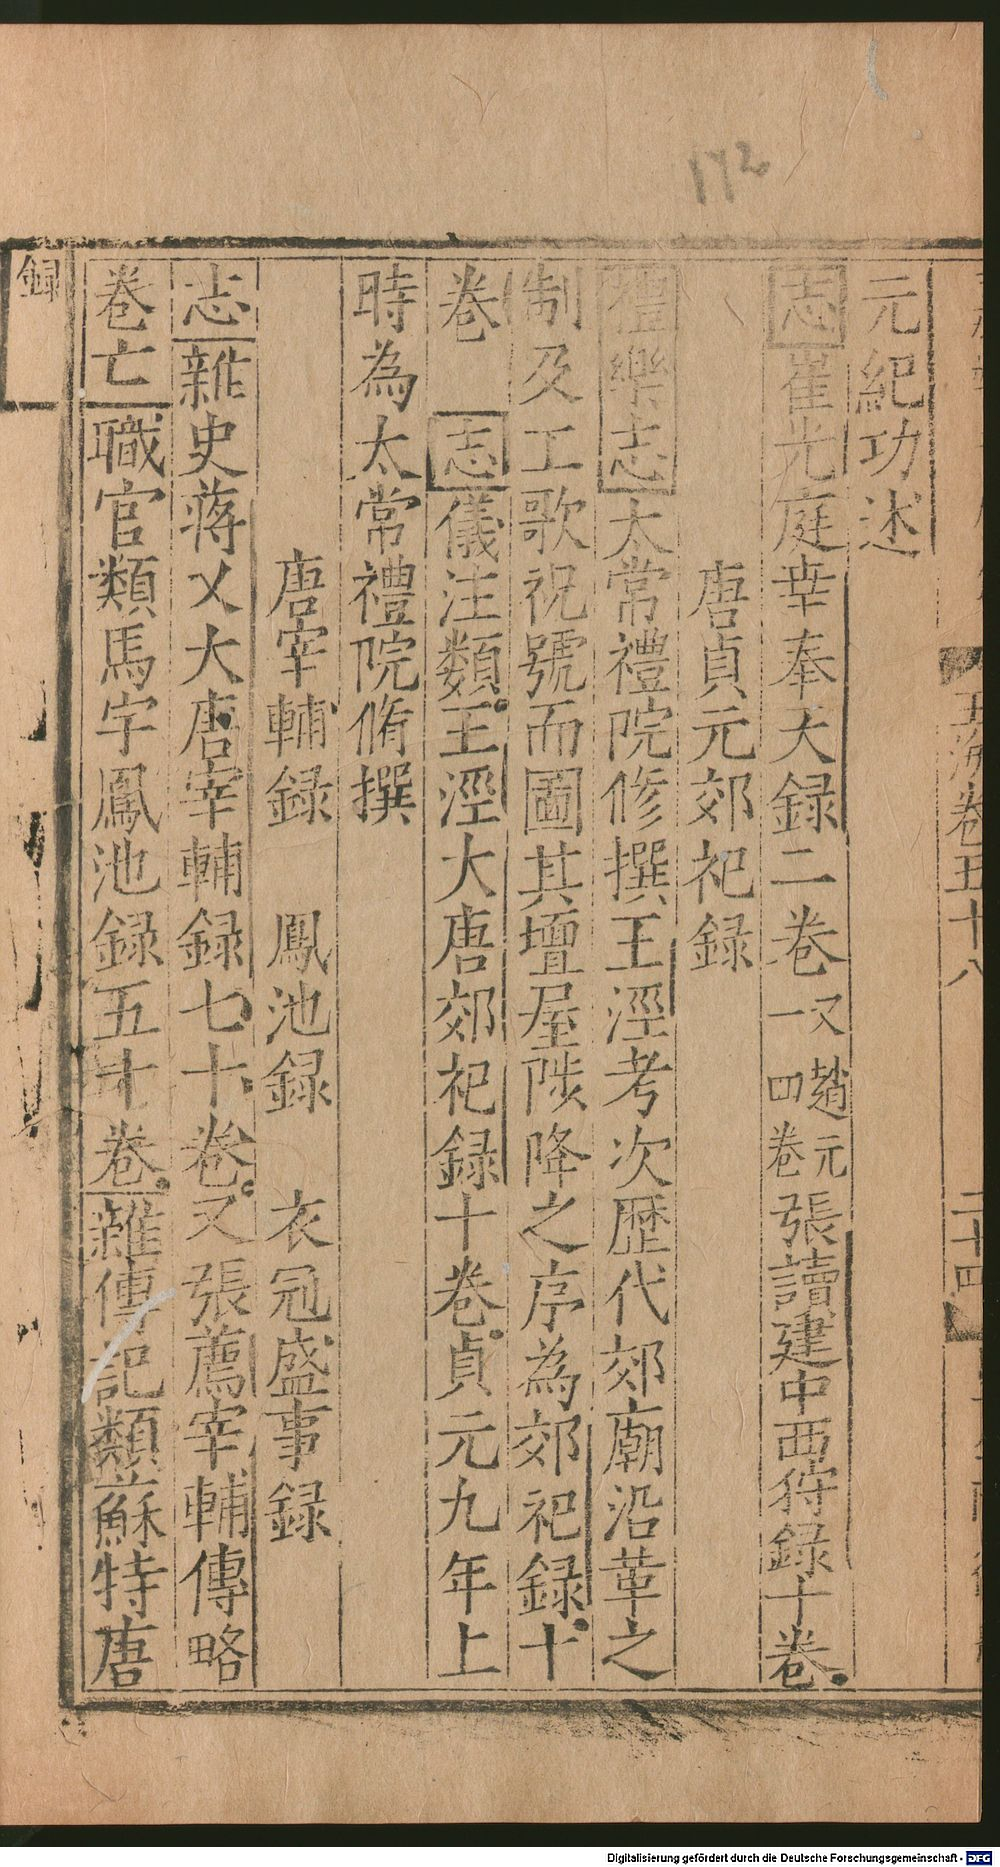 172
玉海卷五十八 二十四
元紀功述
志崔光庭幸奉天録二卷又一趙元四卷張讀建中西狩録十卷
唐貞元郊祀録
禮樂志太常禮院修撰王涇考次歴代郊廟沿革之
制及工歌祝號而圖其壇屋陟降之序為郊祀録十
卷 志儀注類王涇大唐郊祀録十卷貞元九年上
時為太常禮院脩撰
唐宰輔録 鳳池録 衣冠盛事録
志雜史蔣乂大唐宰輔録七十卷又張薦宰輔傳略
卷亡職官類馬宇鳳池録五十卷雜傳記類蘇特唐
録
Digitalisierung gefördert durch die Deutsche Forschungsgemeinschaft - DFG